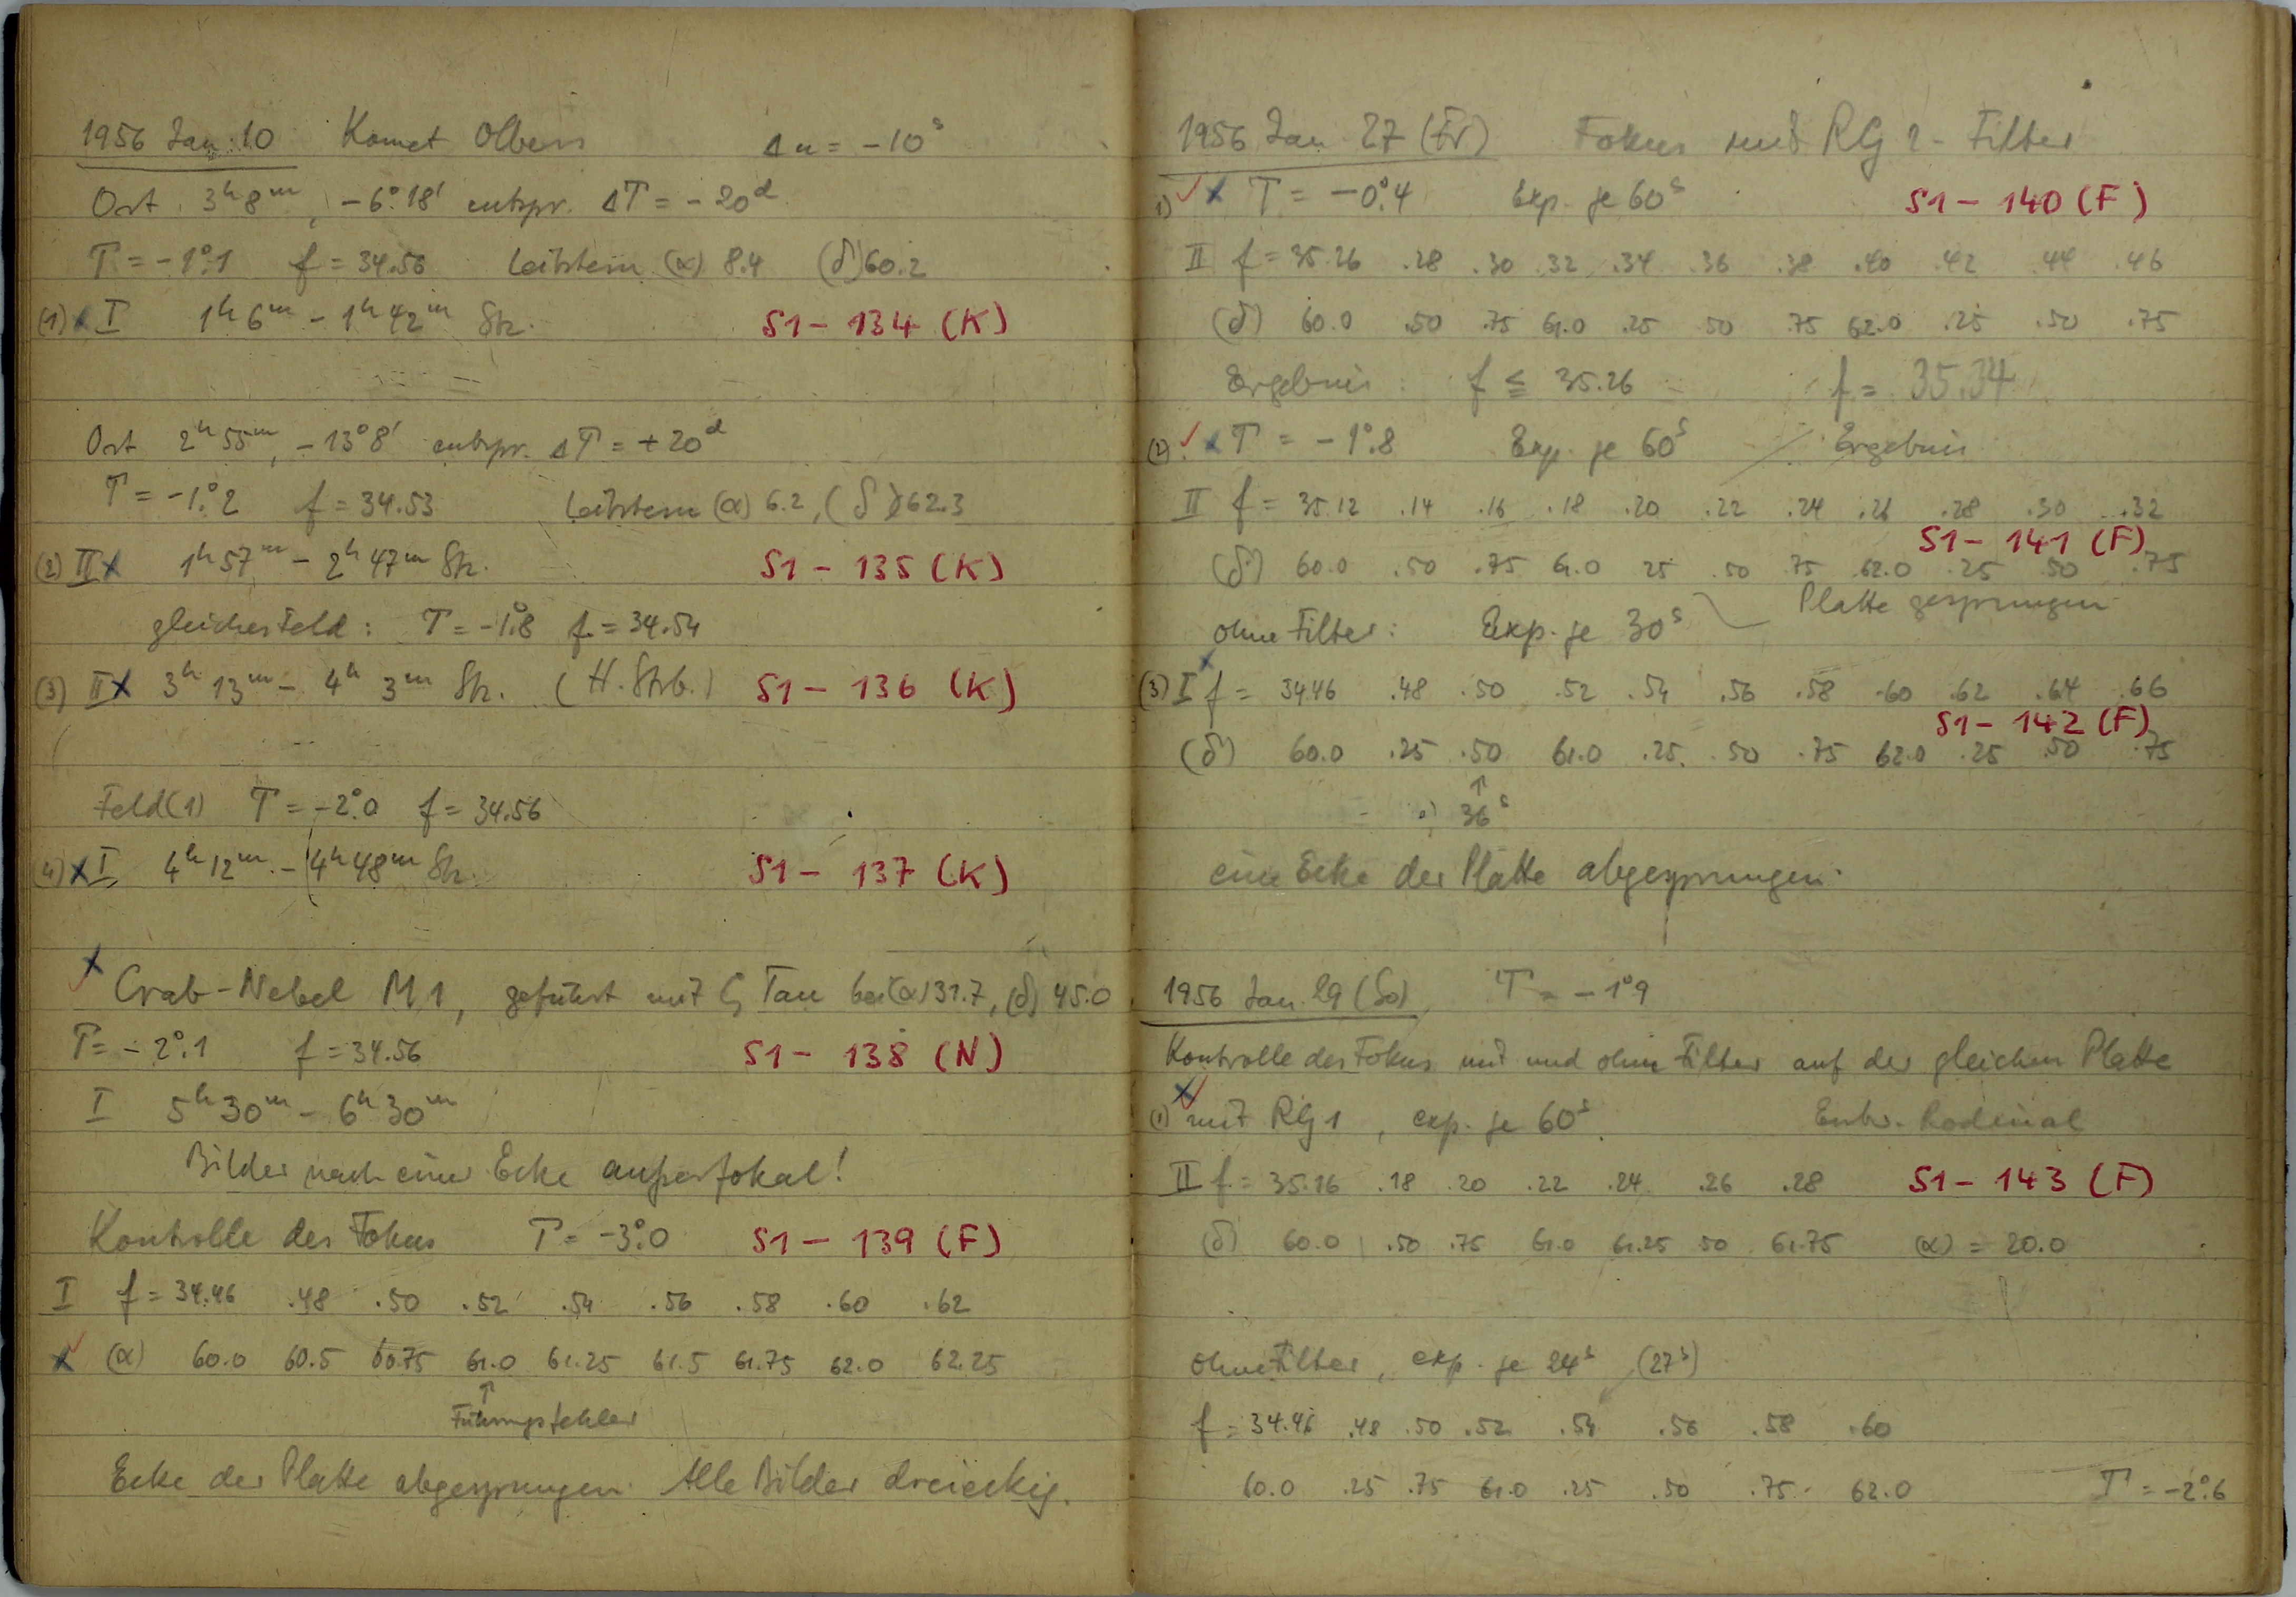 1956 Jan. 10 Komet Olbers Δu = -10ˢ
Ort 3ʰ8ᵐ, -6°18' entspr. ΔT = -20ᵈ
T = -1°.1 f = 34.56 Leitstern (α) 8.4 (δ) 60.2
(1) x I 1ʰ6ᵐ - 1ʰ42ᵐ Stz. S1 - 134 (K)
Ort 2ʰ55ᵐ, -13°8' entspr. ΔT = +20ᵈ
T = -1°.2 f = 34.53 Leitstern (α) 6.2, (δ) 62.3
(2) II x 1ʰ57ᵐ - 2ʰ47ᵐ Stz. S1 - 135 (K)
gleiches Feld: T = -1°.8 f = 34.54
(3) II x 3ʰ13ᵐ - 4ʰ3ᵐ Stz. (H. Strb.) S1 - 136 (K)
Feld (1) T = -2°.0 f = 34.56
4) x I 4ʰ12ᵐ - 4ʰ48ᵐ Stz. S1 - 137 (K)
x Crab-Nebel M1, geführt mit ζ Tau bei (α) 31.7, (δ) 45.0
T = -2°.1 f = 34.56 S1 - 138 (N)
I 5ʰ30ᵐ - 6ʰ30ᵐ
Bilder nach einer Ecke außerfokal!
Kontrolle des Fokus T = -3°.0 S1 - 139 (F)
I f = 34.46 .48 .50 .52 .54 .56 .58 .60 .62
x (α) 60.0 60.5 60.75 61.0 61.25 61.5 61.75 62.0 62.25
↑
Führungsfehler
Ecke der Platte abgesprungen. Alle Bilder dreieckig.
1956 Jan 27 (Fr) Fokus mit RG 2-Filter
1) ✓ x T = -0°.4 Exp. je 60ˢ S1 - 140 (F)
II f = 35.26 .28 .30 .32 .34 .36 .38 .40 .42 .44 .46
(δ) 60.0 .50 .75 61.0 .25 .50 .75 62.0 .25 .50 .75
Ergebnis: f ≦ 35.26 f = 35.34
(2) ✓ x T = -1°.8 Exp. je 60ˢ Ergebnis
II f = 35.12 .14 .16 .18 .20 .22 .24 .26 .28 .30 .32
S1 - 141 (F)
(δ) 60.0 .50 .75 61.0 .25 .50 .75 62.0 .25 .50 .75
Platte gesprungen
ohne Filter: Exp. je 30ˢ
(3) x I f = 34.46 .48 .50 .52 .54 .56 .58 .60 .62 .64 .66
S1 - 142 (F)
(δ) 60.0 .25 .50 61.0 .25 .50 .75 62.0 .25 .50 .75
↑
36ˢ
eine Ecke der Platte abgesprungen.
1956 Jan. 29 (So) T = -1°9
Kontrolle des Fokus mit und ohne Filter auf der gleichen Platte
(1) x ✓ mit RG 1, exp. je 60ˢ. Entw. Rodinal
II f = 35.16 .18 .20 .22 .24 .26 .28 S1 - 143 (F)
(δ) 60.0 .50 .75 61.0 61.25 50 61.75 (α) = 20.0
ohne Filter, exp. je 24ˢ (27ˢ)
f = 34.46 .48 .50 .52 .54 .56 .58 .60
60.0 .25 .75 61.0 .25 .50 .75 62.0 T = -2°.6